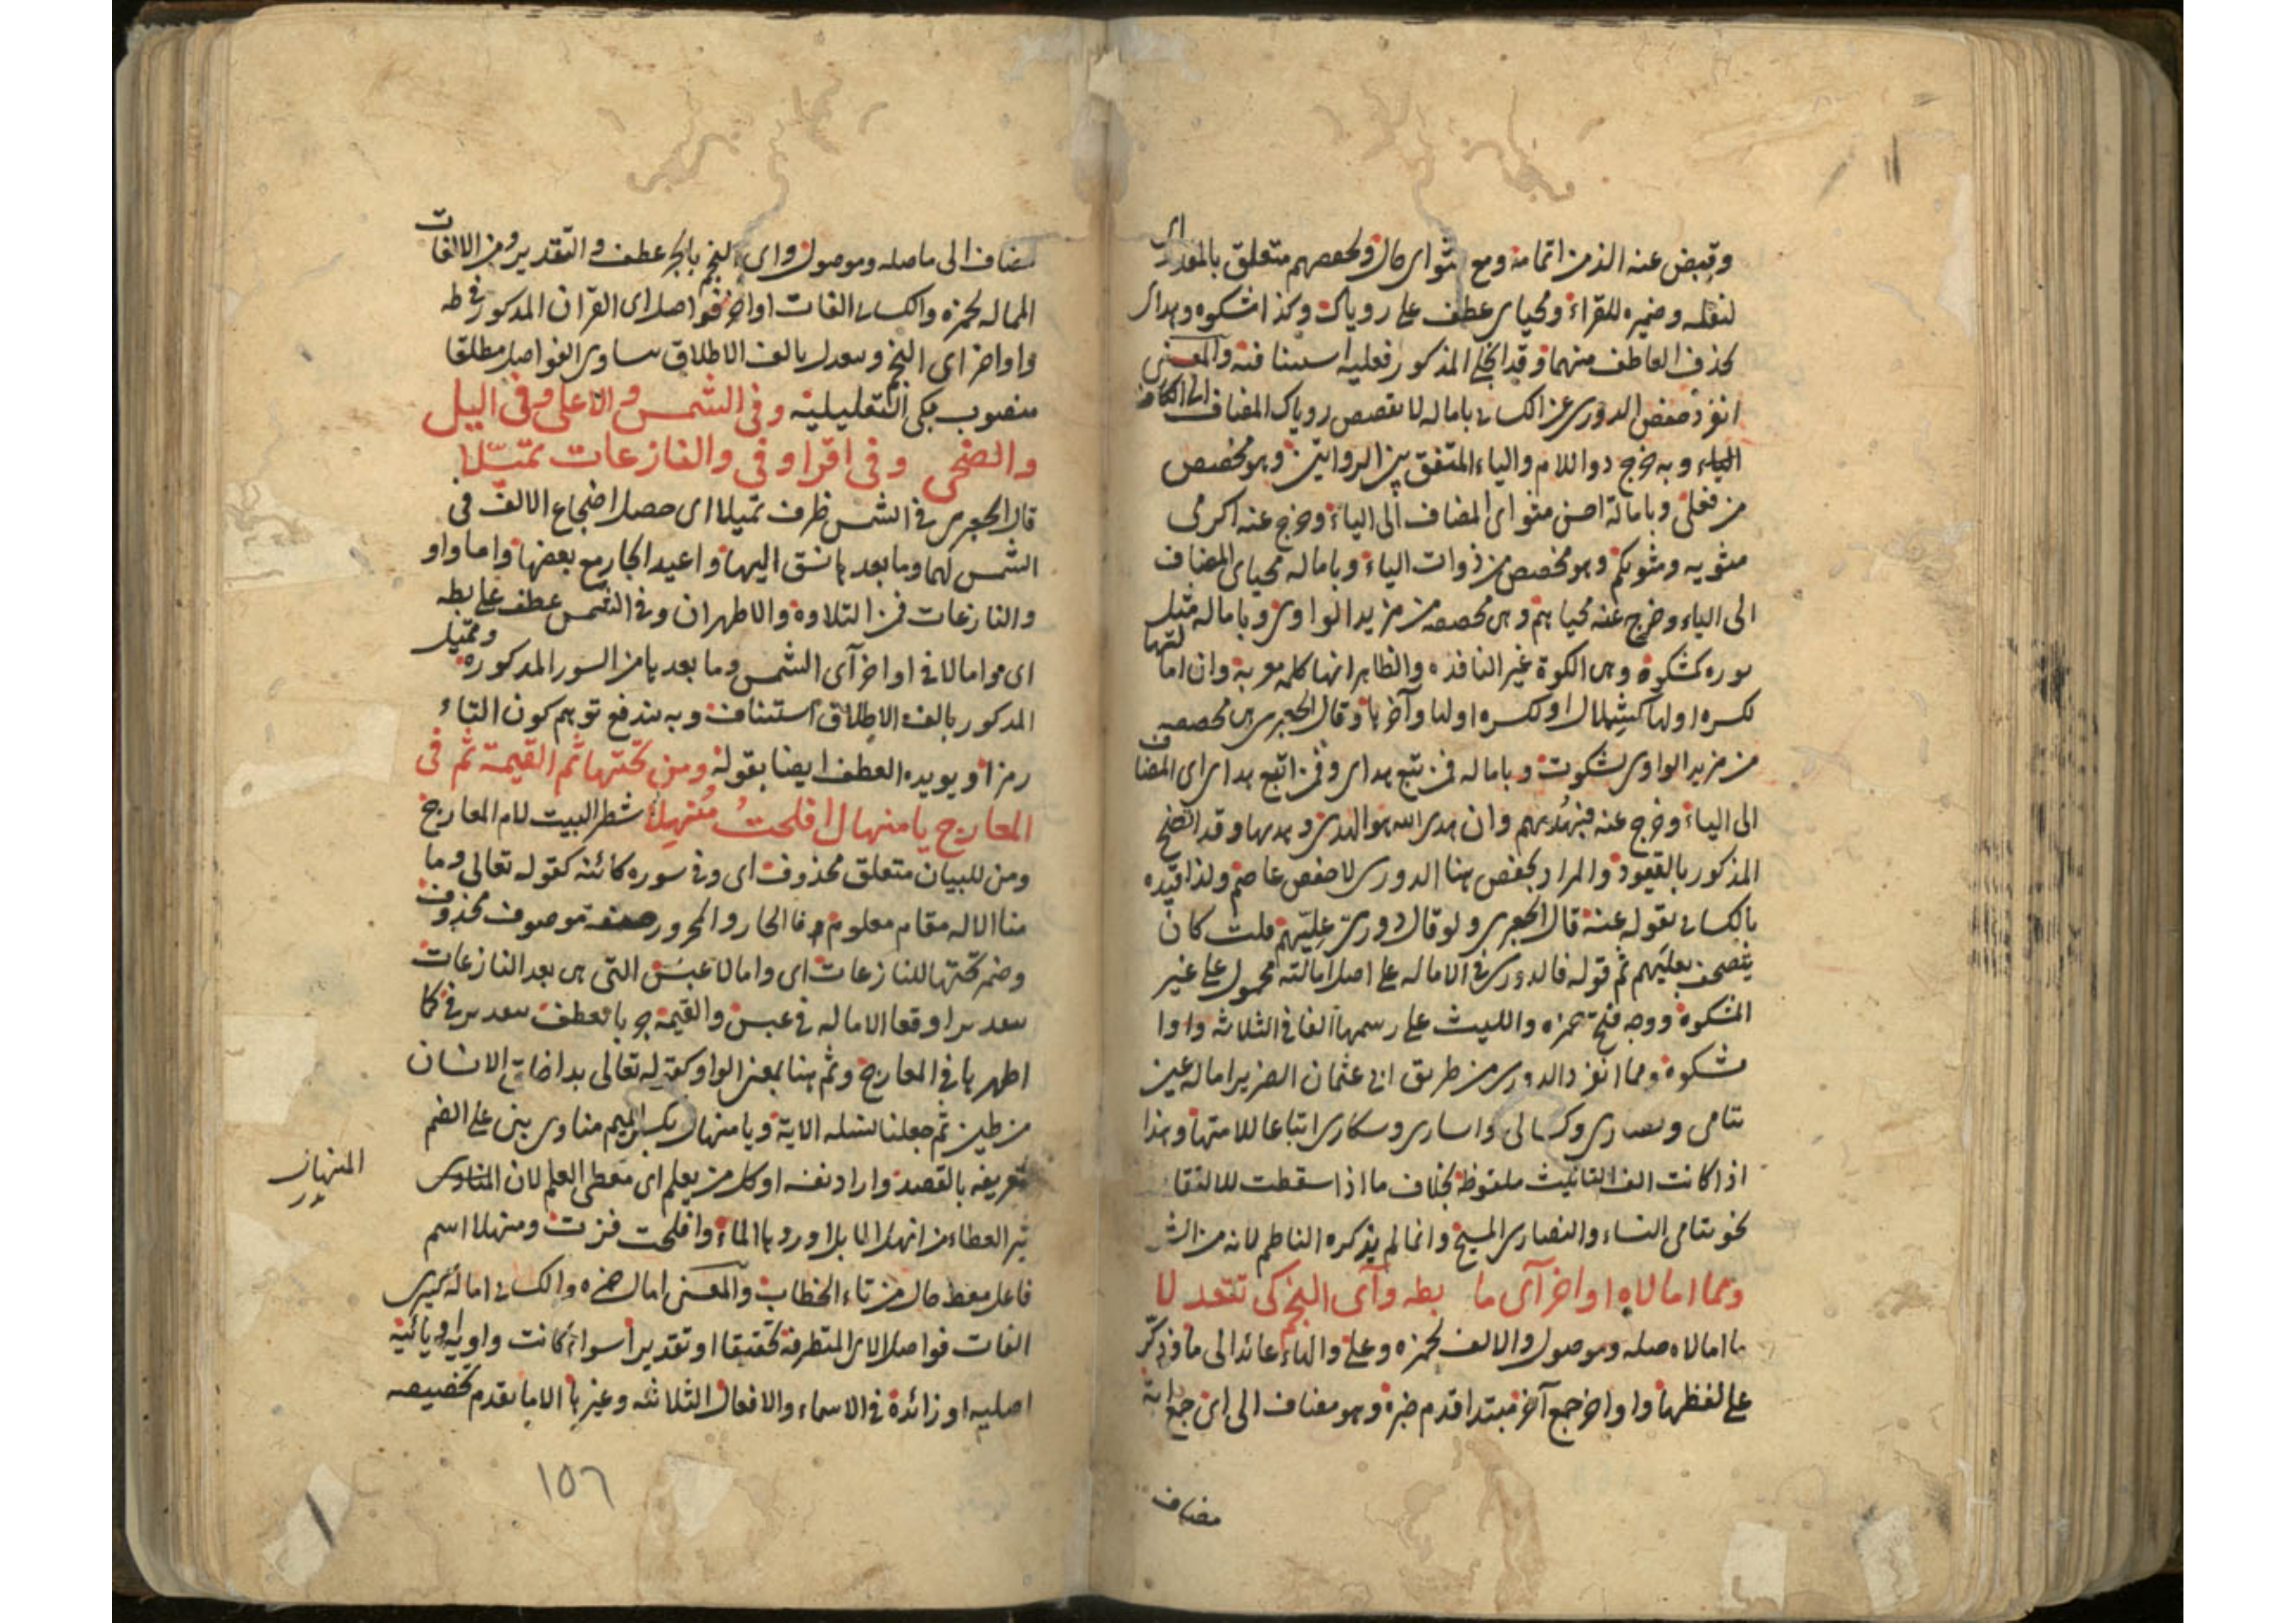 وقبض عنه الذمن اتمامة ومع مثواى حال ولحفصهم متعلق بالمقدر اى
لنقله وضميره للقراء ومحياى عطف على روياك وكذا مشكوة وهداى
بحذف العاطف منهما وقد انجلى المذكور فعليه استينافية والمعنى
انفرد حفص الدورى عن الكسائى بامالة لا تقصص روياك المضاف الى الكاف
الياء وبه خرج ذو اللام والياء المتفق بين الروايتين وهو مخصص
من فعلى وبامالة احسن مثواى المضاف الى الياء وخرج عنه اكرمى
مثويه ومثويكم وهو مخصص من ذوات الياء وبامالة محياى المضاف
الى الياء وخرج عنه محياهم وهى مخصصة من مزيد الواوى وبامالة مثل
نوره كمشكوة وهى الكوة غير النافذة والظاهر انها كلمة معربة وان امالتها
لكسرة اولها كشملال او لكسرة اولها وآخرها وقال الجعبرى هى مخصصة
من مزيد الواوى لشكوت وبامالة فمن تبع هداى وفمن اتبع هداى اى المضاف
الى الياء وخرج عنه فبهديهم وان هدى الله هو الهدى وهديها وقد اتضح
المذكور بالقيود والمراد بحفص هنا الدورى لا حفص عاصم ولذا قيده
بالكسائى بقوله عنه قال الجعبرى ولو قال دورى عليهم قلت كان
يتصحف بعليهم ثم قوله فالدورى فى الامالة على اصل امالته محمول على غير
المشكوة ووجه فتح حمزه والليث على رسمها الفا فى الثلاثة واوا
مشكوة ومما انفرد الدورى من طريق ابى عثمان الضرير امالة عين
يتامى ونصارى وكسالى واسارى وسكارى اتباعا للامتها وهذا
اذا كانت الف التانيث ملفوظة بخلاف ما اذا سقطت للالتقا
نحو يتامى النساء والنصارى المسيح وانما لم يذكره الناظم لانه من
ومما امالاه اواخر آى ما بطه وآى النجم كى تتعدلا
ما امالاه صلة وموصول والالف لحمزه وعلى والهاء عائد الى ما وذكر
على لفظها واواخر جمع آخر مبتدا قدم خبره وهو مضاف الى اى جمع اية
مضاف
مضاف الى ما صلة وموصول واى النجم بالجر عطف والتقدير ومن الالفات
الممالة لحمزه والكسائى الفات اواخر فواصل اى القران المذكور فى طه
واواخر اى النجم وتعدل بالف الاطلاق تساوى الفواصل مطلقا
منصوب بكى التعليلية وفى الشمس والاعلى وفى اليل
والضحى وفى اقرا وفى والنازعات تميلا
قال الجعبرى فى الشمس ظرف تميلا اى حصل اضجاع الالف فى
الشمس كهما وما بعدها نسق اليها واعيد الجار مع بعضها واما واو
والنازعات فمن التلاوة والاظهر ان وفى الشمس عطف على بطه
اى مما امالا فى اواخر آى الشمس وما بعدها من السور المذكوره وتميل
المذكور بالف الاطلاق استيناف وبه يندفع توهم كون التاء
رمزا ويويده العطف ايضا بقوله ومن تحتها ثم القيمة ثم فى
المعارج يا منهال افلحت منهلا شطر البيت لام المعارج
ومن للبيان متعلق محذوف اى وفى سورة كائنة كقوله تعالى وما
منا الا له مقام معلوم فالجار والمجرور صفة موصوف محذوف
وضمير تحتها للنازعات اى وامالا عبس التى هى بعد النازعات
اوقعا الامالة فى عبس والقيمة جر بالعطف فى كما
اظهرها فى المعارج وثم هنا بمعنى الواو كقوله تعالى بدا خلق الانسان
من طين ثم جعلنا نسله الاية ويا منهال بكسر الميم منادى بنى على الضم
تعريفه بالقصد واراد نفسه او كل من يعلم اى معطى العلم لان المنادى
المنهال
ثير العطاء من انهل الابل اوردها الماء وافلحت فزت ومنهلا اسم
فاعل معط حال من تاء الخطاب والمعنى امال حمزه والكسائى امالة كبرى
الفات فواصل الاى المتطرفة تحقيقا او تقديرا سواء كانت واوية او يائية
اصلية او زائدة فى الاسماء والافعال الثلاثة وغيرها الا ما تقدم تخصيصه
١٥٦